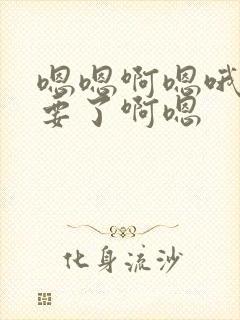 嗯嗯啊嗯哦
要了啊嗯
化身流沙